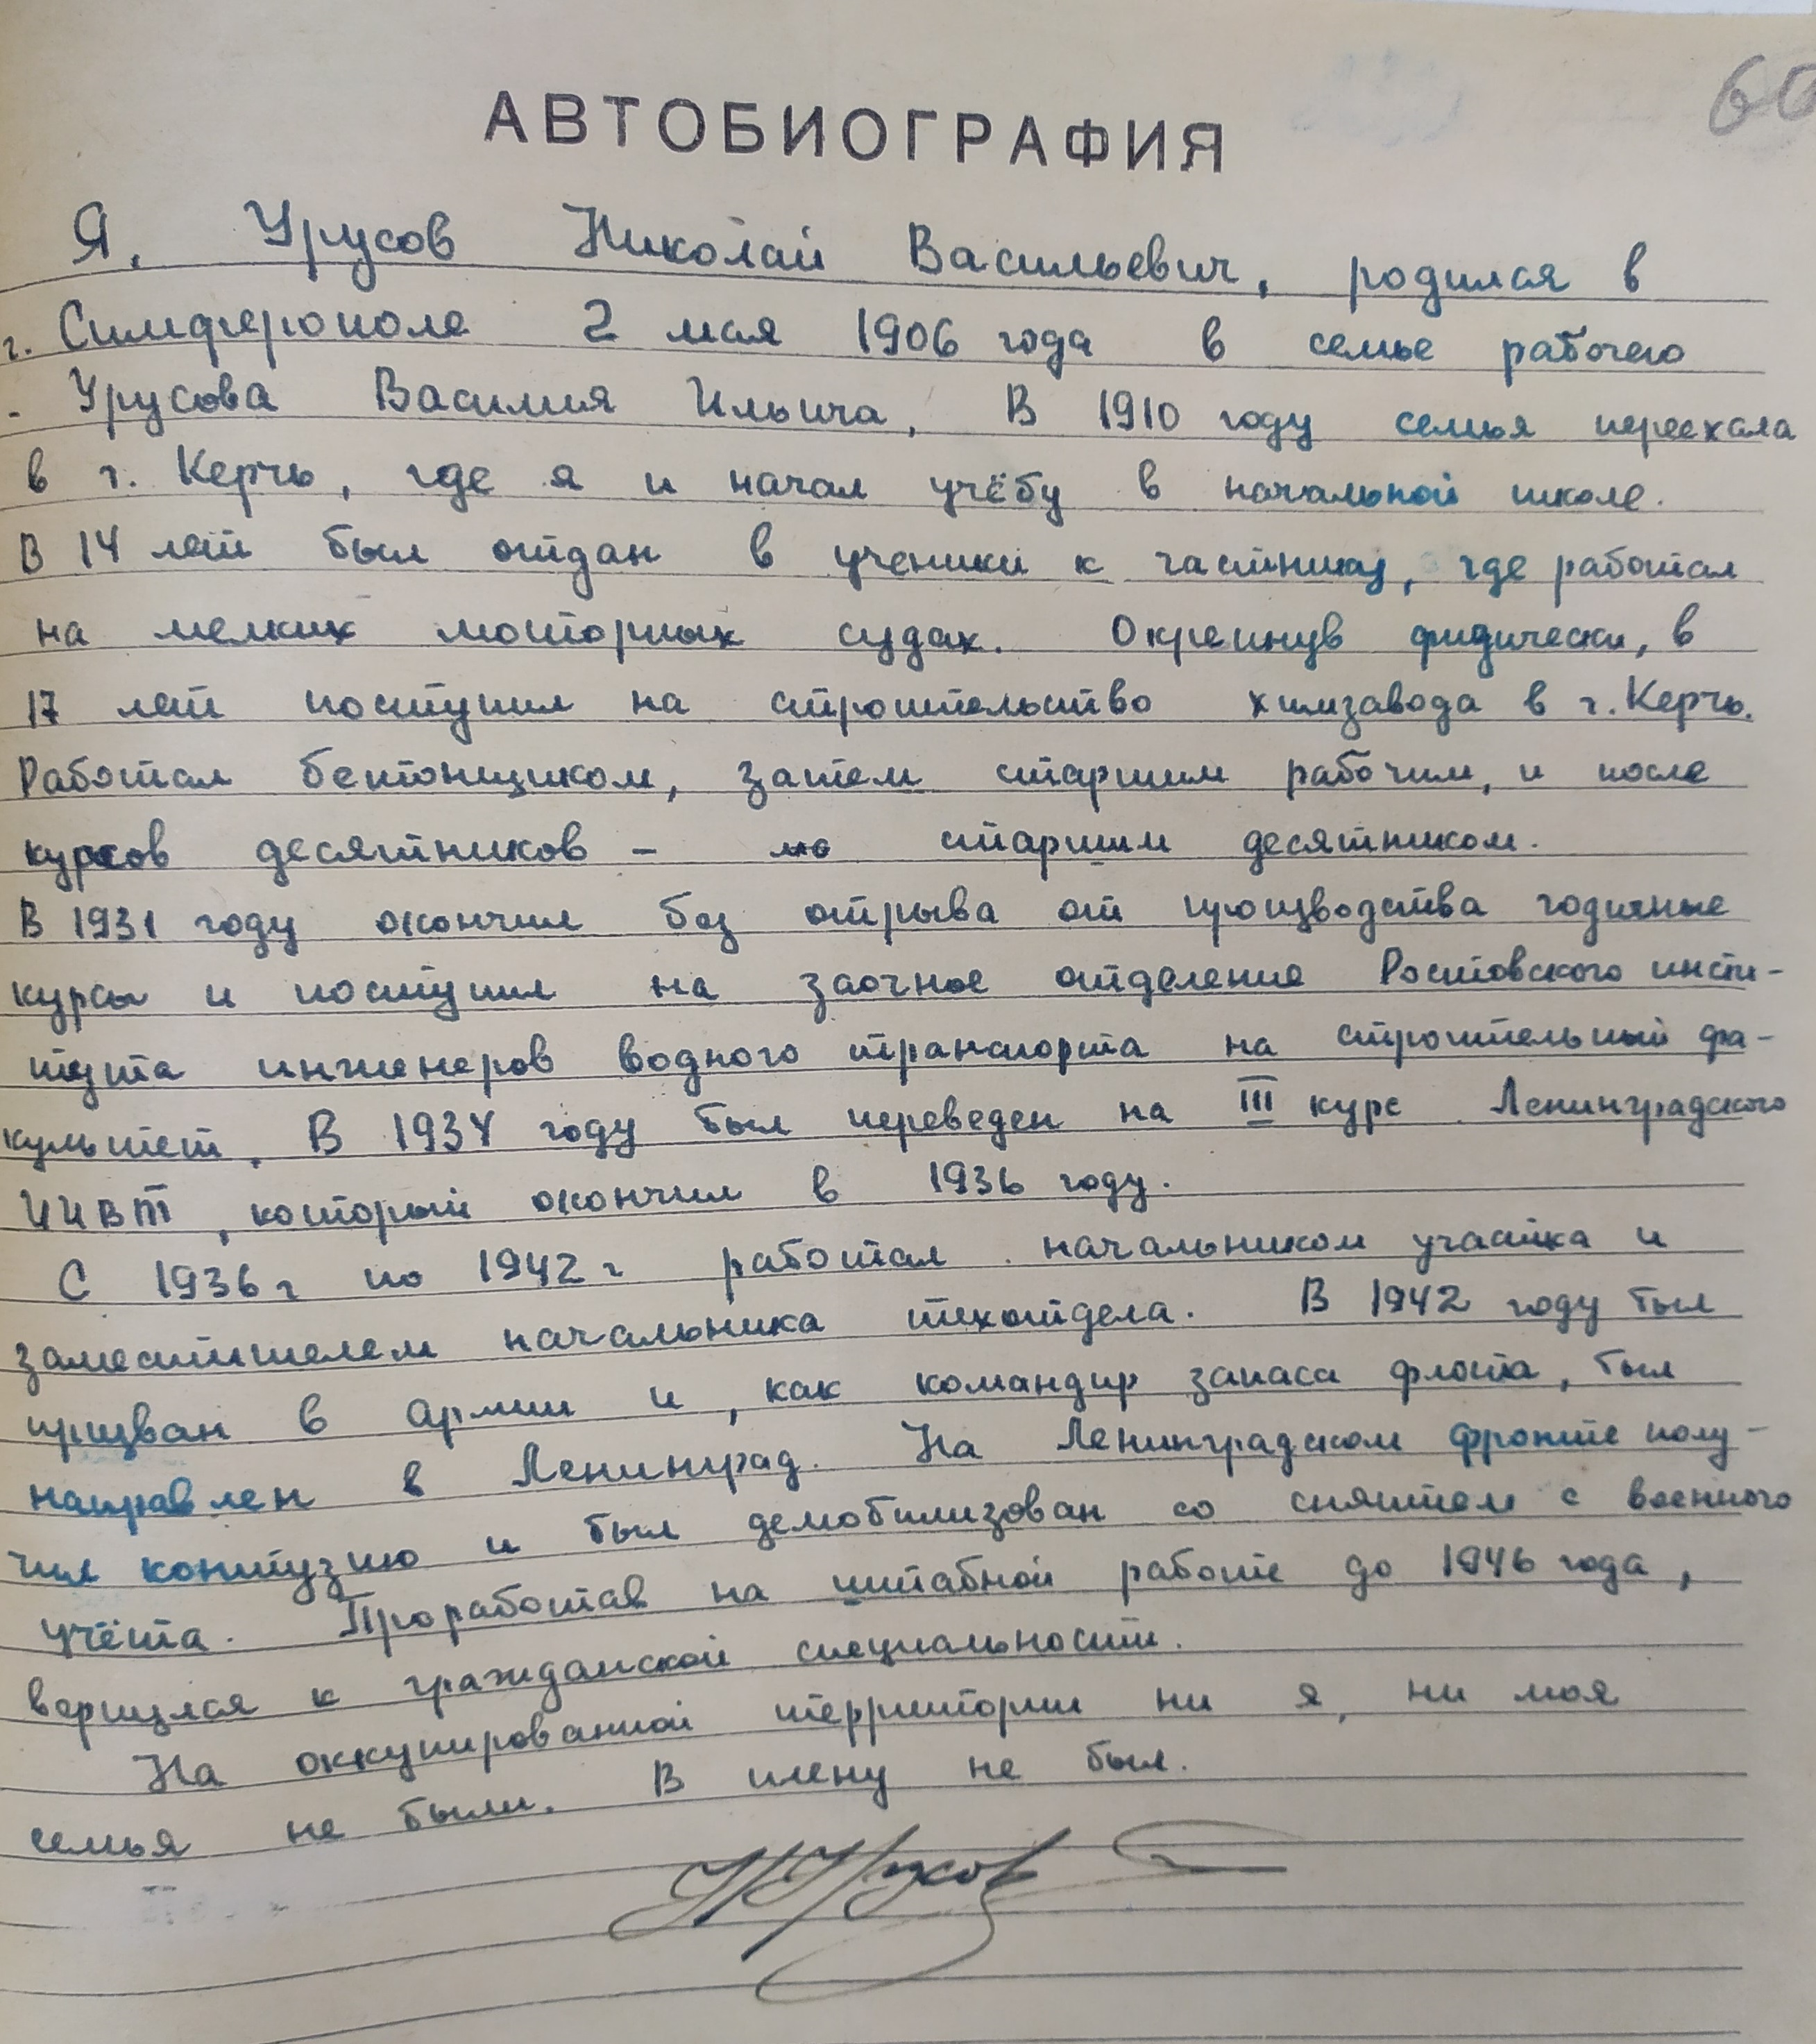 60
АВТОБИОГРАФИЯ
Я, Урусов Николай Васильевич, родился в
г. Симферополе 2 мая 1906 года в семье рабочего
- Урусова Василия Ильича. В 1910 году семья переехала
в г. Керчь, где я и начал учёбу в начальной школе.
В 14 лет был отдан в ученики к частнику, где работал
на мелких моторных судах. Окрепнув физически, в
17 лет поступил на строительство химзавода в г. Керчь.
Работал бетонщиком, затем старшим рабочим, и после
курсов десятников - старшим десятником.
В 1931 году окончил без отрыва от производства годичные
курсы и поступил на заочное отделение Ростовского инсти-
тута инженеров водного транспорта на строительный фа-
культет. В 1934 году был переведен на III курс Ленинградского
ИИВТ, который окончил в 1936 году.
С 1936 г по 1942 г работал начальником участка и
заместителем начальника техотдела. В 1942 году был
призван в Армии и, как командир запаса флота, был
направлен в Ленинград. На Ленинградском фронте полу-
чил контузию и был демобилизован со снятием с военного
учёта. Проработав на штабной работе до 1946 года,
вернулся к гражданской специальности.
На оккупированной территории ни я, ни моя
семья не были. В плену не был.
НУрусов